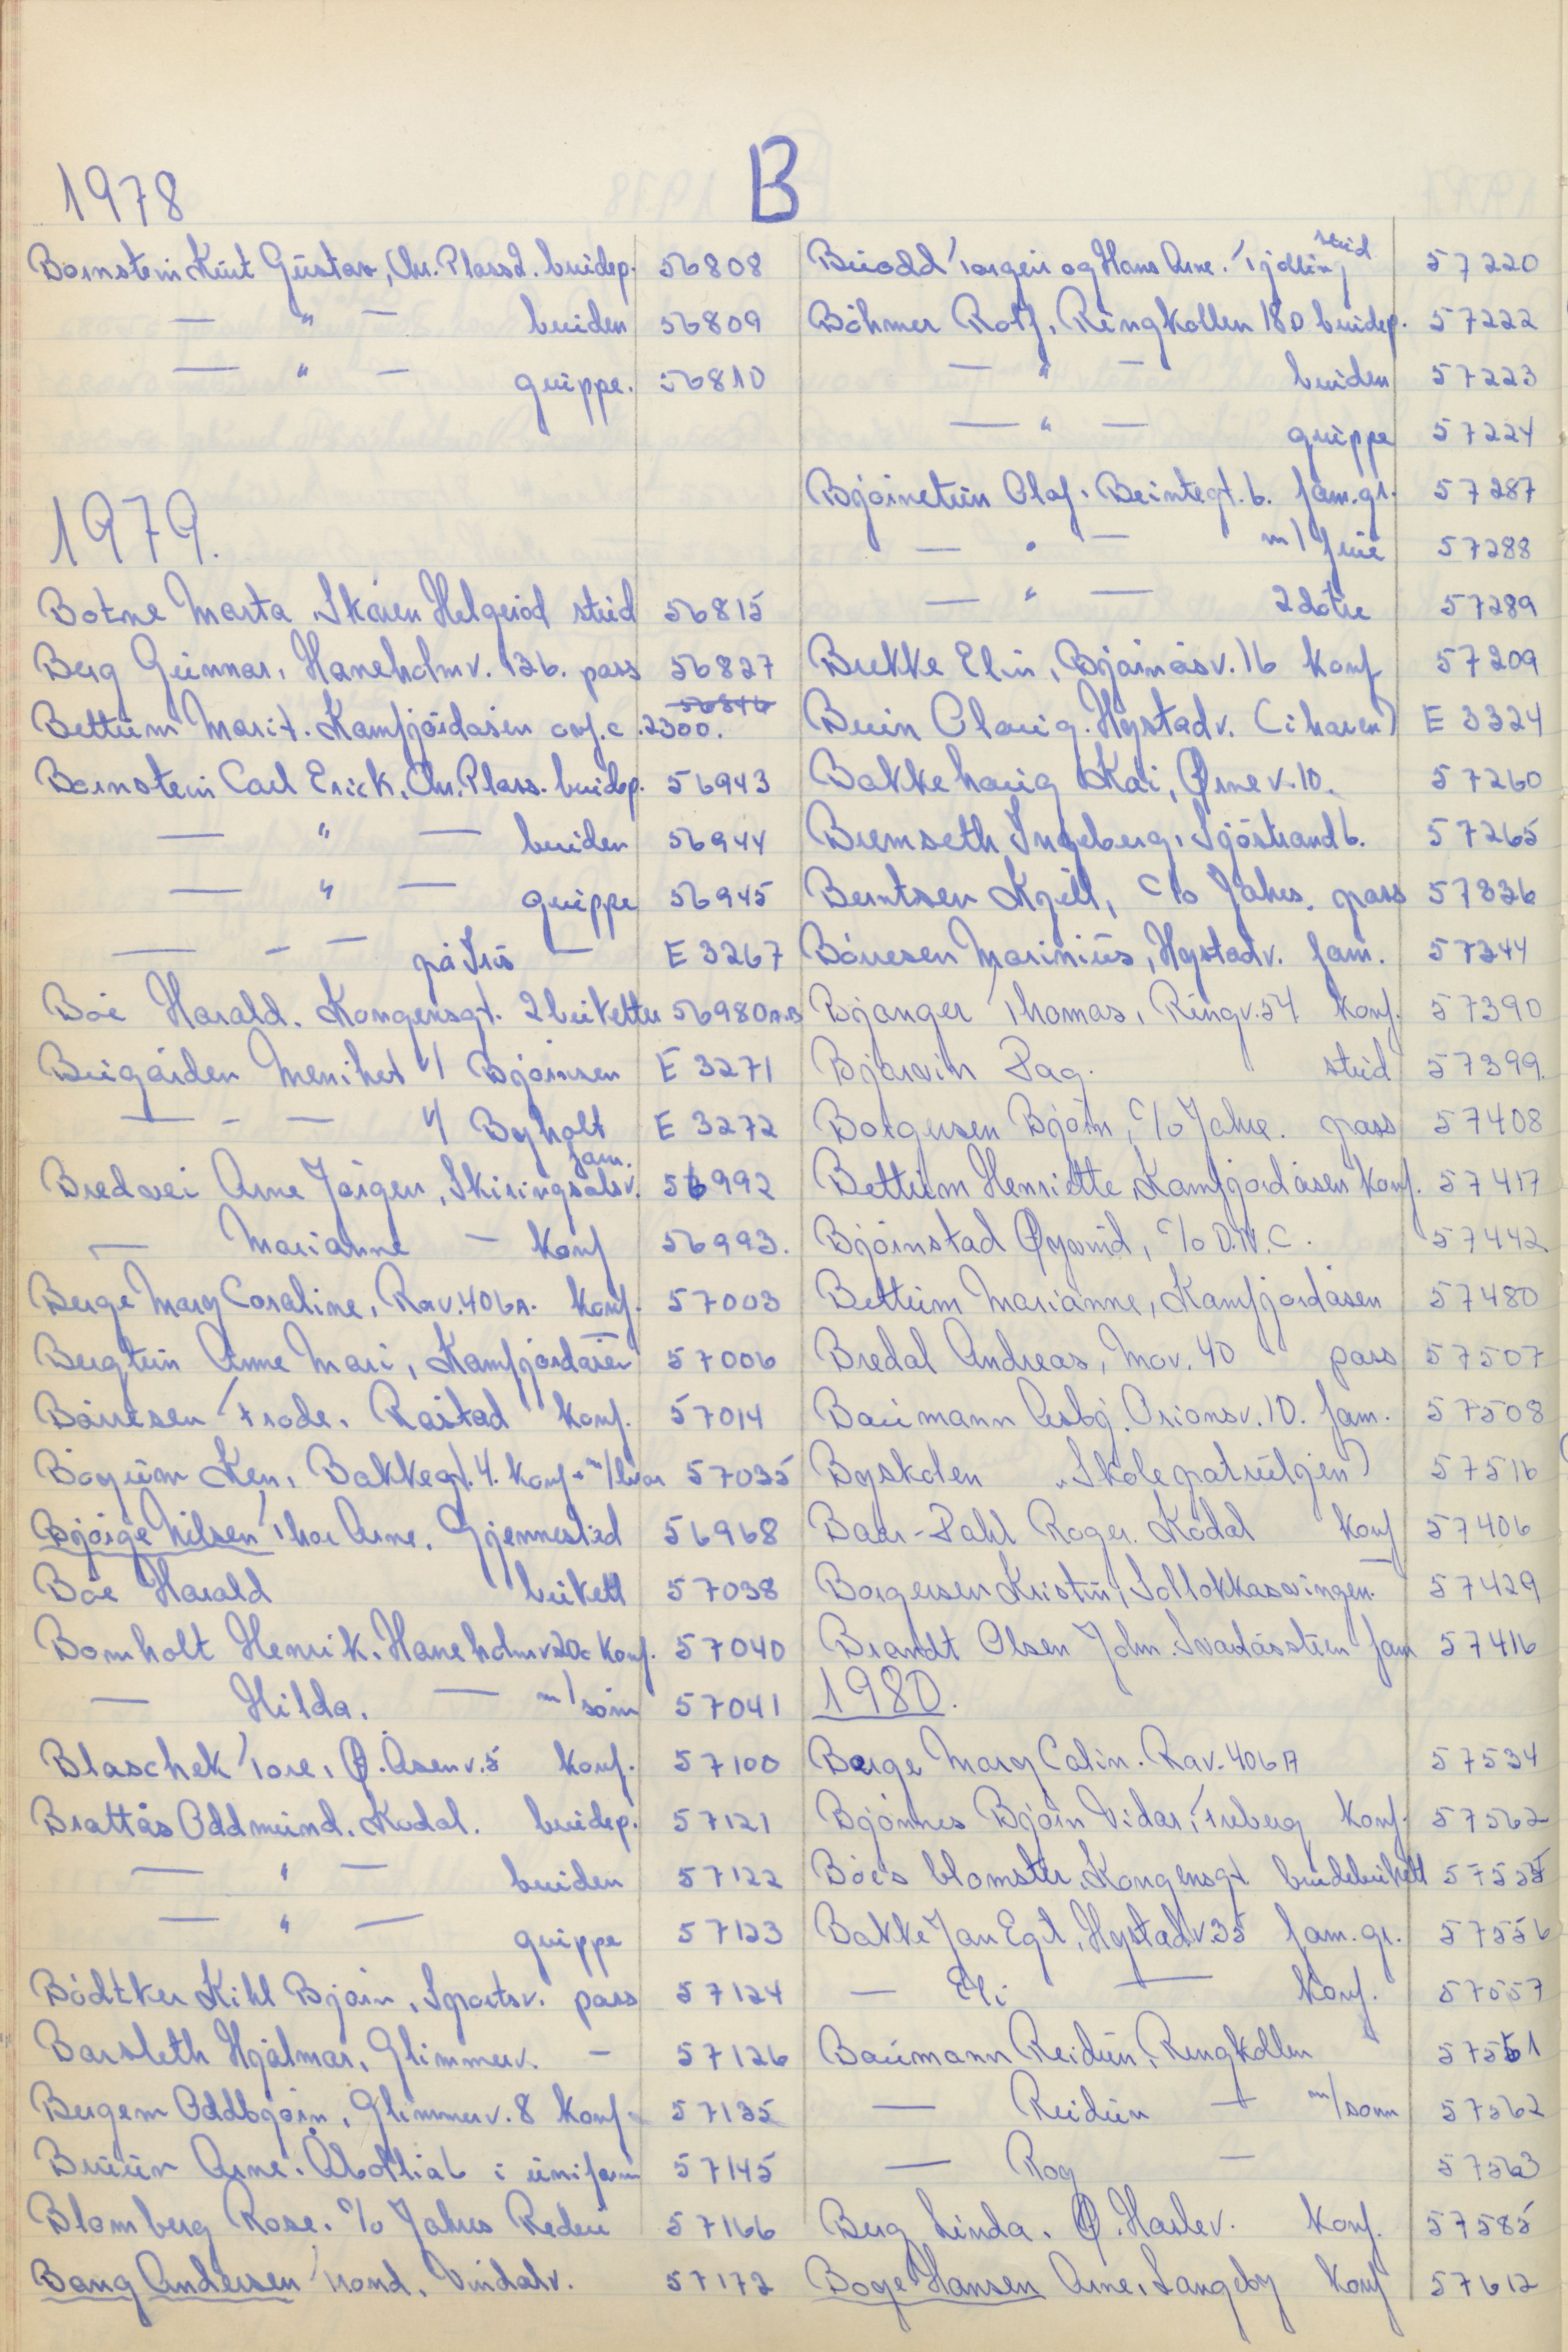 B
1978
Bornstein Kurt Gustav, Chr. Plass 2. brudep. 56808
— " — bruden 56809
— " — gruppe. 56810
1979.
Botne Marta Skåren Helgerød stud 56815
Berg Gunnar, Haneholmv. 13b. pass 56827
Bettum Marit. Kamfjordåsen conf. c. 2300. 56846
Bornstein Carl Erick, Chr. Plass. brudep. 56943
— " — bruden 56944
— " — gruppe 56945
— - — på Iris — E 3267
Böe Harald. Kongensgt. 2 buketter 56980 A.B
Brigården Menihet v/ Bjørnsen E 3271
— - — v/ Byholt E 3272
Bredvei Arne Jørgen, Skiringsalsv. fam. 56992
— Marianne — konf 56993.
Berge Mary Coraline, Rav. 406A. konf. 57003
Bergtun Anne Mari, Kamfjordåsen 57006
Børresen Frode. Råstad konf. 57014
Bøyum Ken, Bakkegt. 4. konf + m/bror 57035
Bjørge Nilsen Thor Arne. Gjennestad 56968
Böe Harald bukett 57038
Bomholt Henrik. Haneholmv 20c konf. 57040
— Hilda. — m/sønn 57041
Blaschek Tore, Ø. Åsenv. 5 konf. 57100
Brattås Oddmund. Kodal. brudep. 57121
— " — bruden 57122
— " — gruppe 57123
Bødtker Kihl Bjørn, Sportsv. pass 57124
Barsleth Hjalmar, Glimmerv. — 57126
Bergem Oddbjørn, Glimmerv. 8 konf. 57135
Bruun Arne. Åbol lia 6 i uniform 57145
Blomberg Rose. c/o Jahres Rederi 57166
Bang Andersen Trond. Vindalv. 57172
Buodd Torgeir og Hans Arne. Tjølling stud 57220
Böhmer Rolf, Ringkollen 18D brudep. 57222
— " — bruden 57223
— " — gruppe 57224
Bjørnetun Olaf. Beintegt. 6. fam.gr. 57287
— " — m/frue 57288
— " — 2 døtre 57289
Brekke Elin, Bjørnåsv. 16 konf 57209
Bruin Olaug. Hystadv. (i haven) E 3324
Bakkehaug Kai, Ørnev. 10. 57260
Bremseth Ingeberg, Sjøstrand 6. 57265
Berntsen Kjell, c/o Jahres. pass 57336
Børresen Marinius, Hystadv. fam. 57344
Bjanger Thomas, Ringv. 54 konf. 57390
Bjarvin Dag. stud 57399.
Borgersen Bjørn, c/o Jahre. pass 57408
Bettum Henriette Kamfjordåsen konf. 57417
Bjørnstad Øyvind, c/o D.N.C. 57442
Bettum Marianne, Kamfjordåsen 57480
Bredal Andreas, Mov. 40 pass 57507
Baumann Asbj. Orionsv. 10. fam. 57508
Byskolen "Skolepatruljen) 57516
Baer-Dahl Roger. Kodal konf 57406
Borgersen Kristin, Sollokkasvingen. 57429
Brandt Olsen John. Svartåsstien fam 57416
1980.
Berge Mary Calin. Rav. 406A 57534
Bjønnes Bjørn Vidar, Freberg konf. 57562
Böe's blomster. Kongensgt brudebukett 57555
Bakke Jan Egil, Hystadv. 35 fam. gr. 57556
— Eli — konf. 57557
Baumann Reidun, Ringkollen 57561
— Reidun — m/sønn 57562
— Roy — 57563
Berg Linda. Ø. Haslev. konf. 57585
Boge Hansen Arne, Langeby konf 57612